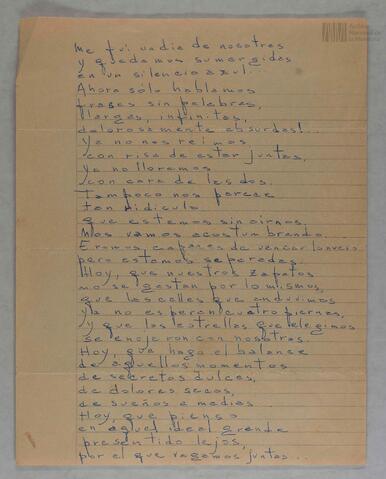 Me fui un día de nosotras
y quedamos sumergidas
en un silencio azul.
Ahora sólo hablamos
frases sin palabras,
largas, infinitas,
dolorosamente absurdas!...
Ya no nos reimos
con risa de estar juntas,
ya no lloramos
con cara de las dos.
Tampoco nos parece
tan ridículo
que estemos sin oirnos.
Nos vamos acostumbrando.
Eramos capaces de vencer lo necio
pero estamos separadas.
Hoy, que nuestros zapatos
no se gastan por lo mismos,
que las calles que anduvimos
ya no esperan cuatro piernas,
y que las estrellas que elegimos
se enojaron con nosotras.
Hoy, que hago el balance
de aquellos momentos
de secretos dulces,
de dolores secos,
de sueños a medias
Hoy, que pienso
en aquel ideal grande
presentido lejos,
por el que vagamos juntas...
Archivo
Nacional de
la Memoria